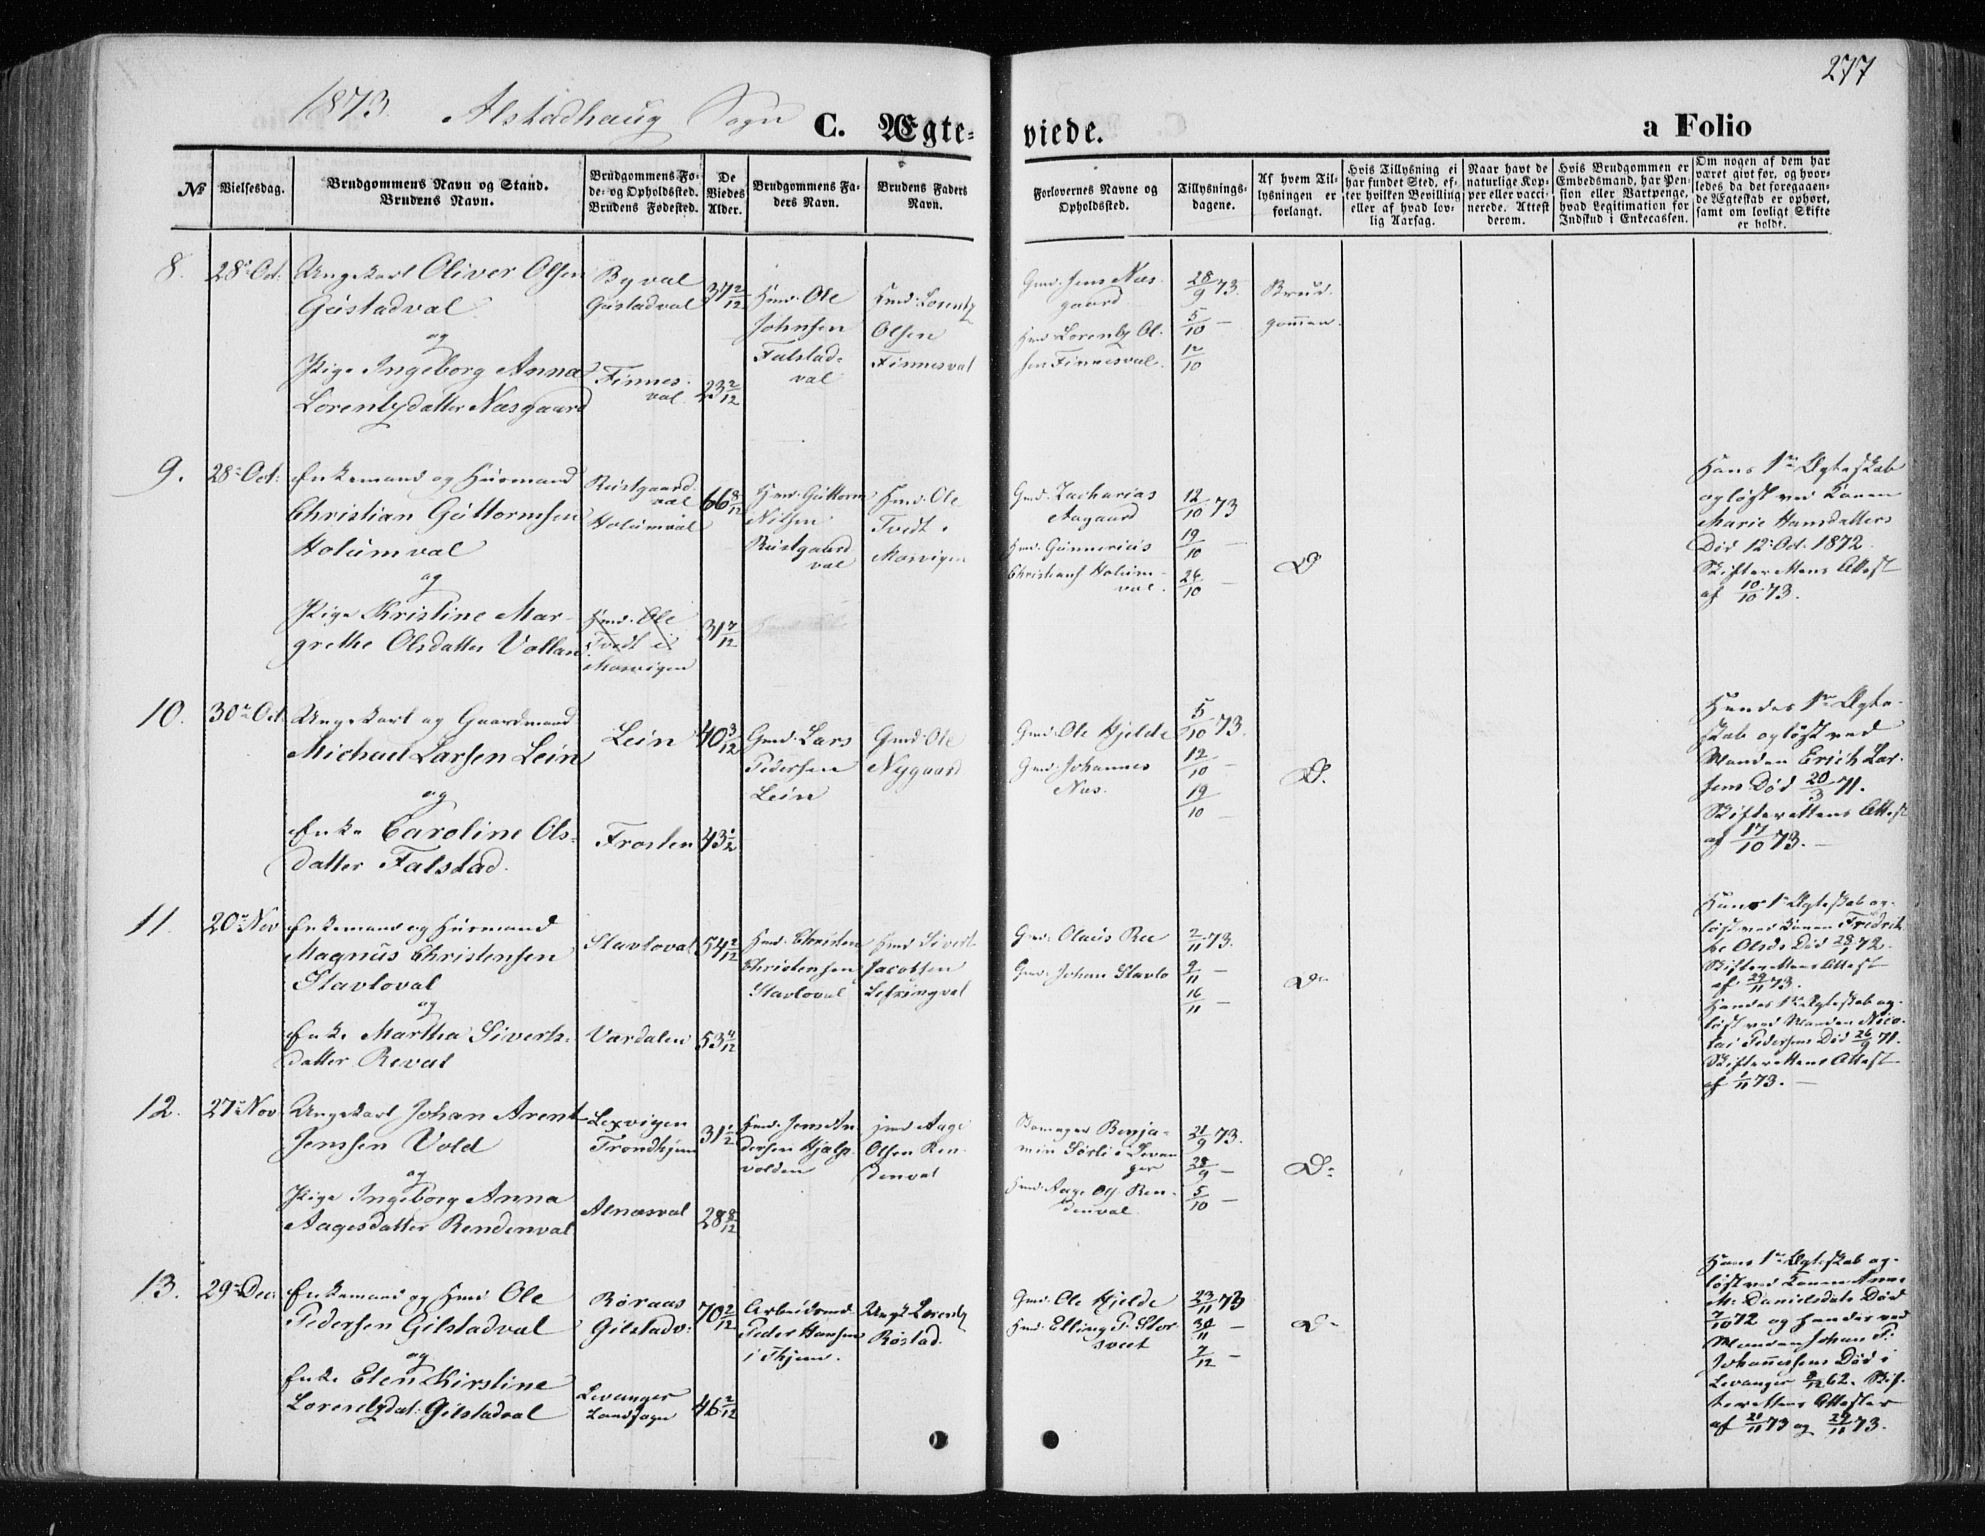 277
1873. Alstadhaug Sogn C. Ægteviede. a Folio
№
Vielsesdag.
Brudgommens Navn og Stand.
Brudens Navn.
Brudgommens Fø-
de- og Opholdssted.
Brudens Fødested.
De
Viedes
Alder.
Brudgommens Fa-
ders Navn.
Brudens Faders
Navn.
Forlovernes Navne og
Opholdssted.
Tillysnings-
dagene.
Af hvem Til-
lysningen er
forlangt.
Hvis Tillysning ei
har fundet Sted, ef-
ter hvilken Bevilling
eller af hvad lov-
lig Aarsag.
Naar havt de
naturlige Kop-
per eller vacci-
nerede. Attest
derom.
Hvis Brudgommen er
Embedsmand, har Pen-
sion eller Vartpenge,
hvad Legitimation for
Indskud i Enkecassen.
Om nogen af dem har
været givt før, og hvor-
ledes da det foregaaen-
de Ægteskab er ophørt,
samt om lovligt Skifte
er holdt.
8.
28de Oct.
Ungekarl Oliver Olsen
Gustadval
og
Pige Ingeborg Anna
Lorentzdatter Næsgaard
Byval
Gustadval
Finnes-
val
37 2/12
23 2/12
Hmd. Ole
Johnsen
Falstad-
val
Hmd. Lorentz
Olsen
Finnesval
Gmd. Jens Næs-
gaard
Hmd. Lorentz Ol-
sen Finnesval.
28/9 73.
5/10 —
12/10
Brud-
gommen.
9.
28de Oct.
Enkemand og Husmand
Christian Guttormsen
Holumval
og
Pige Kristine Mar-
grethe Olsdatter Vollan
Rustgaard-
val
Holumval
Hmd. Ole
Tvedt i
Mosvigen
66 8/12
31 7/12
Hmd. Guttorm
Nilsen
Rustgaard
val
Hmd. Ole
Tvedt.
Mosvigen
Gmd. Zacharias
Aagaard
Hmd. Gunnerius
Christians Holum-
val.
12/10 73
19/10 —
26/10 —
Do
Hans 1ste Ægteskab
opløst ved Konen
Marie Hansdatters
Død 12te Oct. 1872.
Skifterettens Attest
af 10/10 73.
10.
30te Oct.
Ungekarl og Gaardmand
Michael Larsen Lein
og
Enke Caroline Ols-
datter Falstad.
Lein
Frosten
40 3/12
43 1/2
Gmd. Lars
Pedersen
Lein
Gmd. Ole
Nygaard
Gmd. Ole Hjelde
Gmd. Johannes
Næs.
5/10 73.
12/10 —
19/10 —
Do.
Hendes 1ste Ægte-
skab opløst ved
Manden Erich Lar-
sens Død 20/3 71.
Skifterettens Attest
af 17/10 73. —
11.
20de Nov
Enkemand og Husmand
Magnus Christensen
Stavloval
og
Enke Martha Siverts-
datter Reval
Stavloval
Værdalen
54 2/12
53 4/12
Hmd. Christen
Christensen
Stavloval
Hmd Sivert
Jacobsen
Lefringval
Gmd. Olaus Ree
Gmd. Johan Stavlo
2/11 73.
9/11 —
16/11 —
Do
Hans 1ste Ægteskab op-
løst ved Konen Fredrik-
ke Olsds Død 28/1 72.
Skifterettens Attest
af 29/11 73.
Hendes 1ste Ægteskab op-
løst ved Manden Nico-
lai Pedersens Død 26/9 71.
Skifterettens Attest
af 1/11 73. —
12.
27de Nov
Ungekarl Johan Arent
Jensen Vold
og
Pige Ingeborg Anna
Aagesdatter Rendenval
Lexvigen
Trondhjem
Alnæsval
31 1/2
28 8/12
Hmd. Jens An-
dersen Hjelp-
volden
Hmd Aage
Olsen Ren-
denval
Skomager Benja-
min Sørli i Levan-
ger
Hmd. Aage Ols. Ren-
denval
21/9 73.
28/9 —
5/10 —
Do
13.
29de Dec.
Enkemand og Hmd Ole
Pedersen Gilstadval
og
Enke Elen Kirstine
Lorentzdat: Gilstadval
Røraas
Gilstadv:
Levanger
Landsogn
70 2/12
46 2/12
Arbeidsmd.
Peder Hansen
i Thjem.
Ungk. Lorentz
Røstad.
Gmd. Ole Hjelde
Hmd. Elling P. Stor-
sveet
23/11 73
30/11 —
7/12 —
Do
Hans 1ste Ægteskab op-
løst ved Konen Anne
M. Danielsdats Død
7/10 72 og Hendes ved
Manden Johan P.
Johannessens Død i
Levanger 8/12 62. Skif-
terettens Attester
af 21/11 73 og 29/11 73.